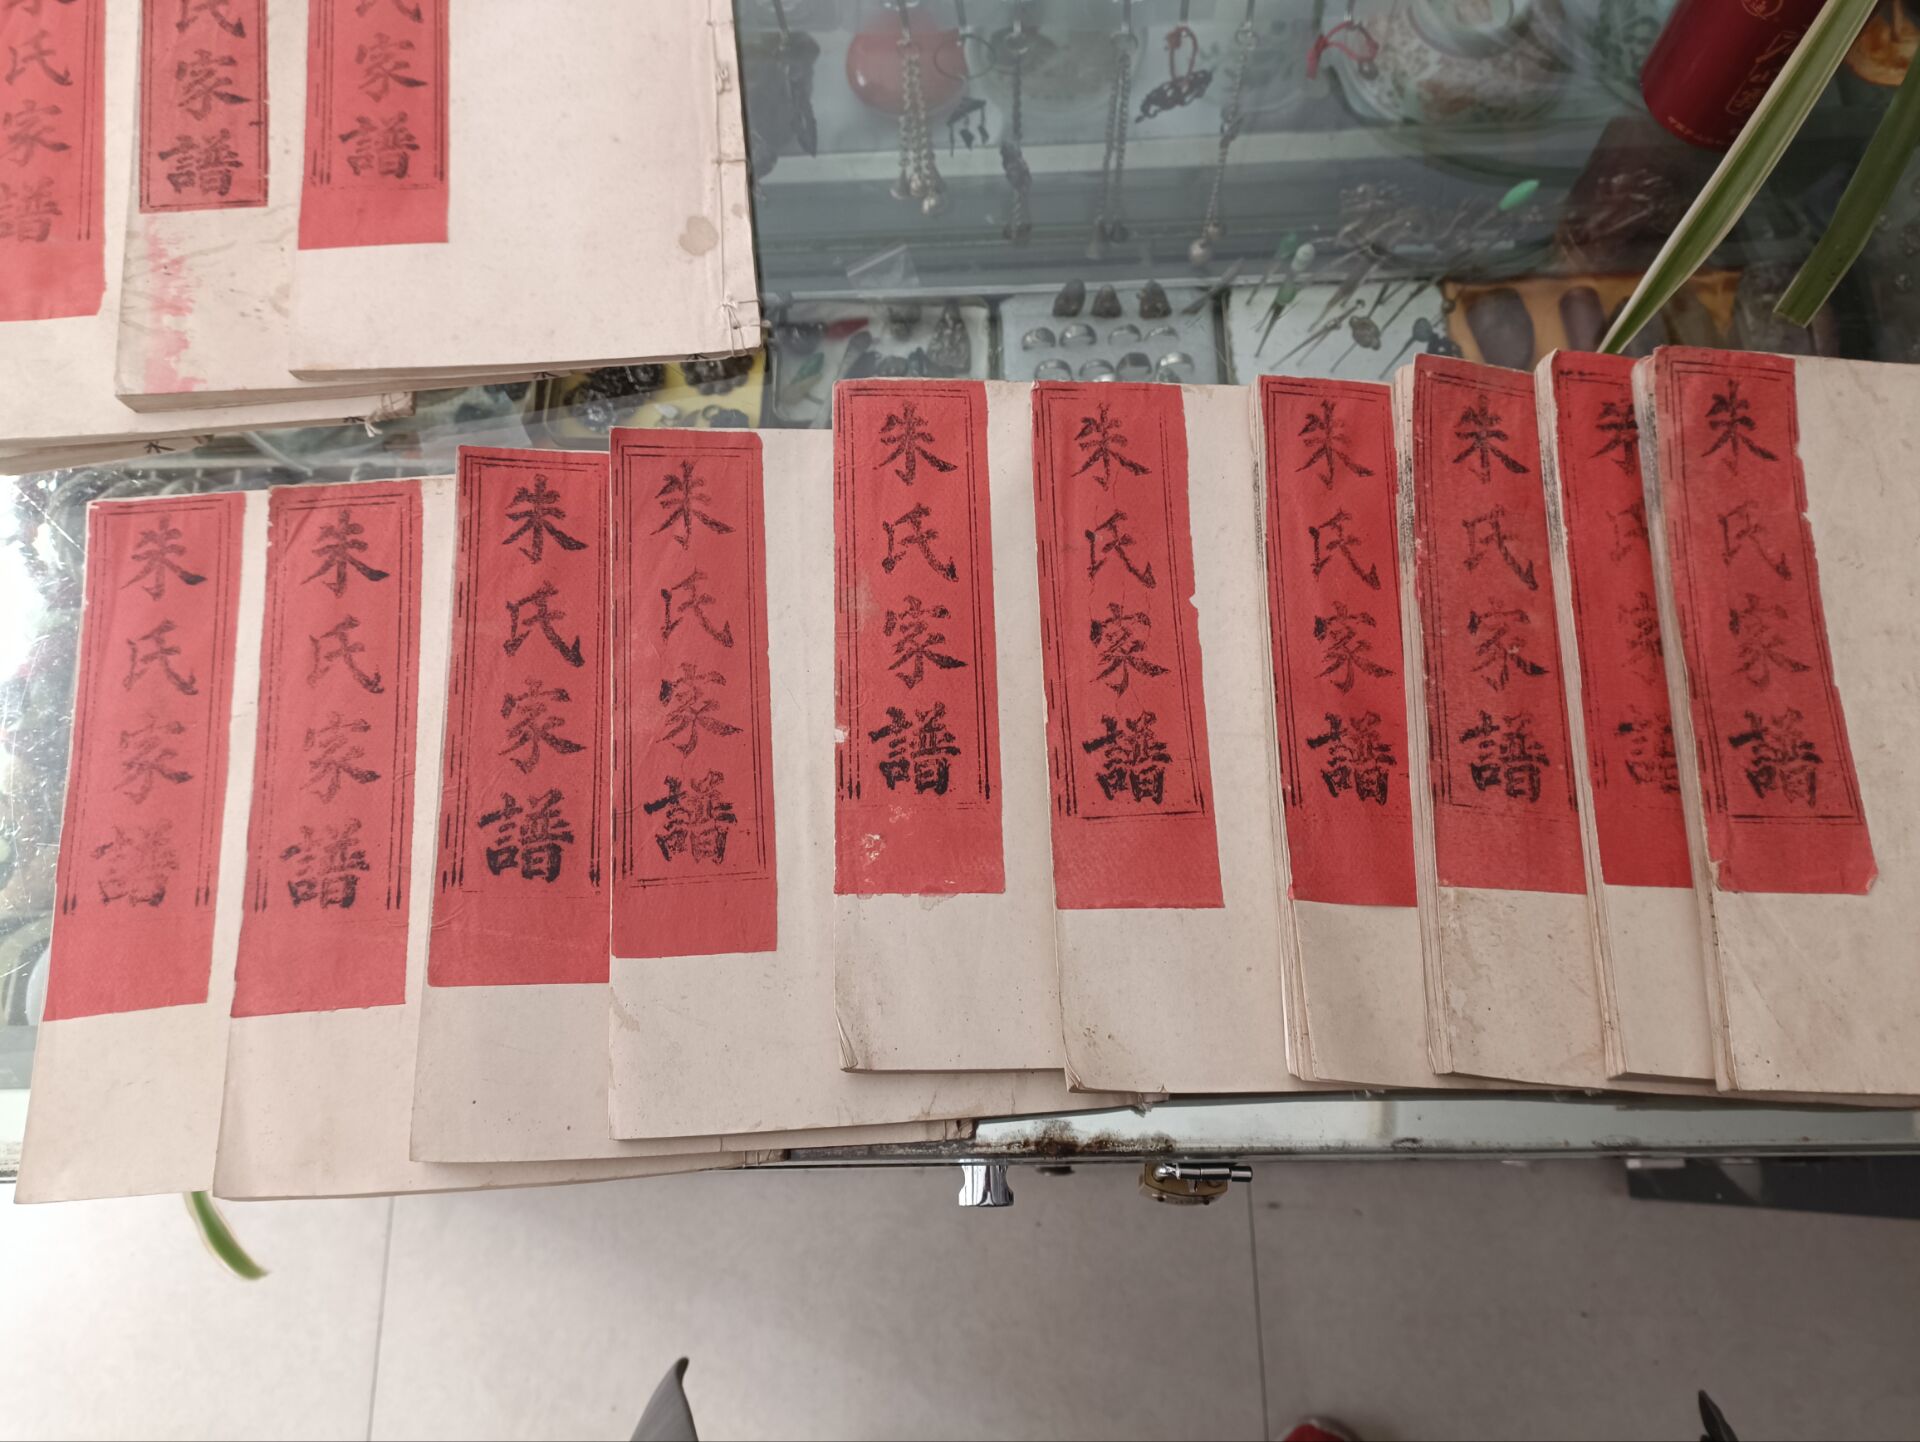 氏家譜
氏家譜
家譜
朱氏家譜
朱氏家譜
朱氏家譜
朱氏家譜
朱氏家譜
朱氏家譜
朱氏家譜
朱氏家譜
朱氏家譜
朱氏家譜